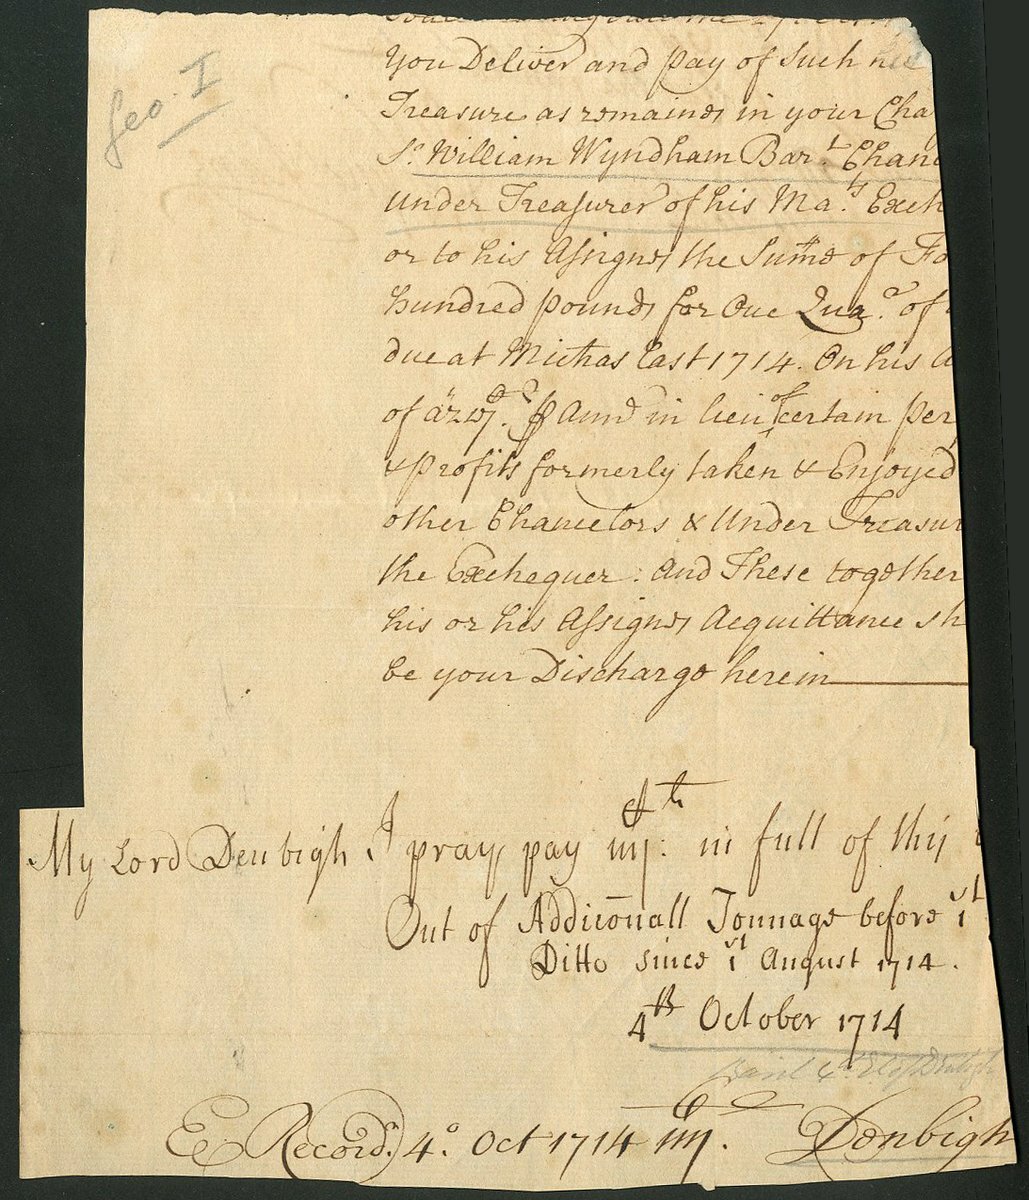 Geo. I
You Deliver and pay of Such his
Treasure as remaines in your Cha
Sr. William Wyndham Bart. Chanc
Under Treasurer of his Mats. Exch
or to his Assignes the Sume of Fo
hundred pounds for One Quar. of
due at Michas last 1714. On his A
of p Annu in lieu of certain per
& profits formerly taken & Enjoyed
other Chancelors & Under Treasur
the Exchequer: And These together
his or his Assignes Acquittance sh
be your Discharge herein
My Lord Denbigh I pray pay iiijCli: in full of this
Out of Addiconall Tonnage before 1st
Ditto Since 1st August 1714.
4th October 1714
Basil 4th E. of Denbigh
Ex Recordr. 4o. Oct 1714
Denbigh